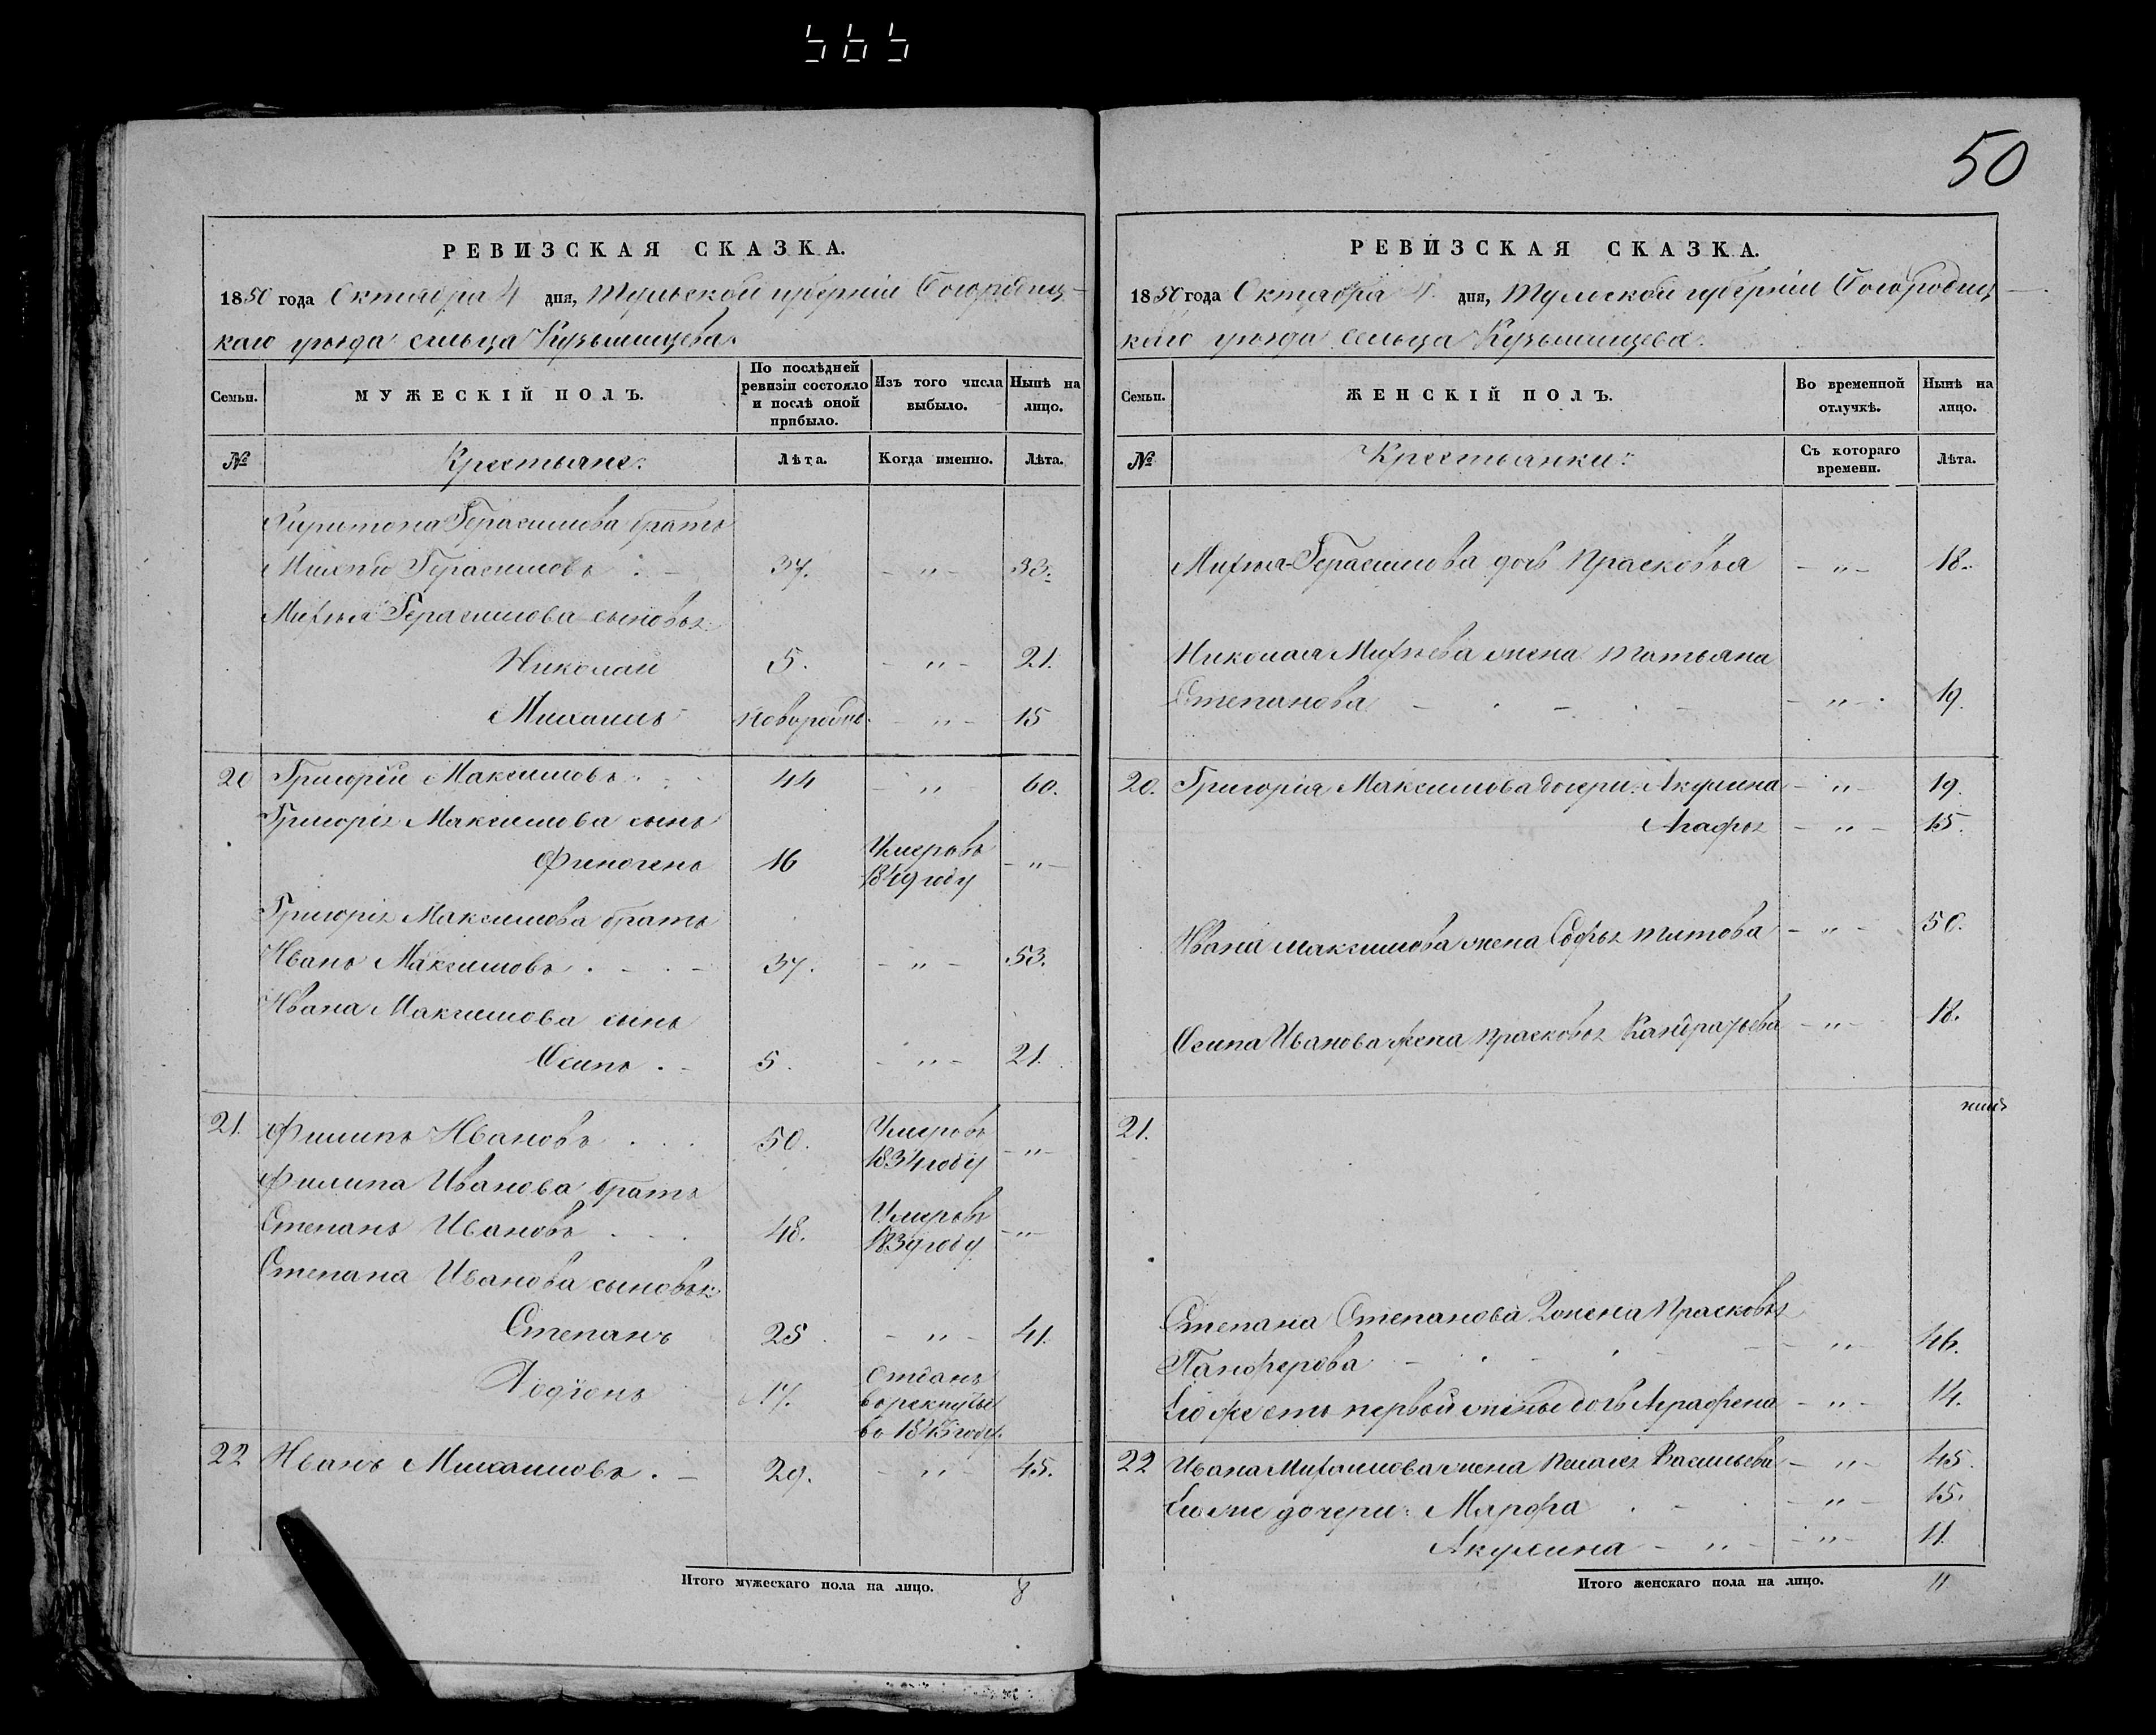 565
50
РЕВИЗСКАЯ СКАЗКА.
1850 года Октября 4 дня, Тульской губерніи Богородиц-
каго уѣзда сельца Кузьмищева.
Семьи.
МУЖЕСКІЙ ПОЛЪ.
По послѣдней ревизіи состояло и послѣ оной прибыло.
Изъ того числа выбыло.
Нынѣ на лицо.
№
Крестьяне:
Лѣта.
Когда именно.
Лѣта.
Харитона Герасимова братъ
Михѣй Герасимовъ 37. - " - 53.
Михѣя Герасимова сыновья
Николай 5. - " - 21.
Михаилъ новорожд. - " - 15
20 Григорій Максимовъ 44 - " 60.
Григорія Максимова сынъ
Финогенъ 16 Умеръ въ 1849 году - " -
Григорія Максимова братъ
Иванъ Максимовъ 37. - " - 53.
Ивана Максимова сынъ
Осипъ 5. - " - 21.
21. Филипъ Ивановъ 50. Умеръ въ 1834 году - " -
Филипа Иванова братъ
Степанъ Ивановъ 48. Умеръ въ 1839 году - " -
Степана Иванова сыновья:
Степанъ 25 - " - 41.
Родіонъ 17. Отданъ в рекруты во 1845 году.
22 Иванъ Михаиловъ 29. - " - 45.
Итого мужескаго пола на лицо. 8
РЕВИЗСКАЯ СКАЗКА.
1850 года Октября 4 дня, Тульской губерніи Богородиц-
каго уѣзда сельца Кузьмищева.
Семьи.
ЖЕНСКІЙ ПОЛЪ.
Во временной отлучкѣ.
Нынѣ на лицо.
№
Крестьянки:
Съ котораго времени.
Лѣта.
Михѣя Герасимова дочь Прасковья - " - 18.
Николая Михѣева жена Татьяна
Степанова - " - 19.
20. Григорія Максимова дочери: Акулина - " - 19.
Агафья - " - 15.
Ивана Максимова жена Софья Титова - " - 50.
Осипа Иванова жена Прасковья Кандратьева - " - 18.
21.
Степана Степанова 2 жена Прасковья
Панферова - " - 46.
Его же отъ первой жены дочь Аграфена - " - 14.
22 Ивана Михаилова жена Пелагея Васильева - " - 45.
Его же дочери: Марфа - " - 15.
Акулина - " - 11.
Итого женскаго пола на лицо. 11